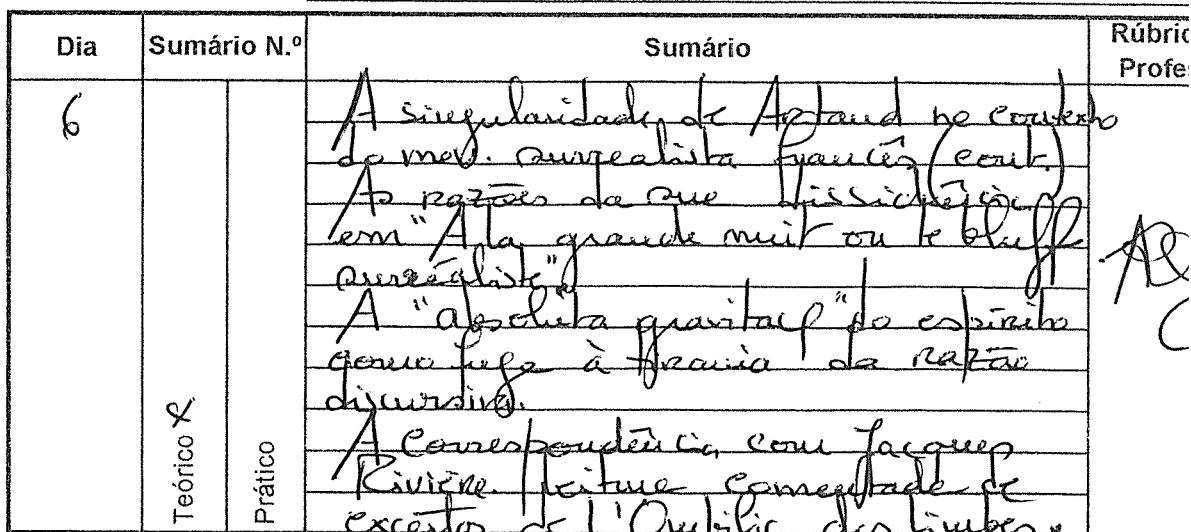 Dia Sumário N.º Sumário Rúbric
Profes
6
A singularidade de Artaud no contexto
do mov. surrealista francês (cont.)
As razões da sua dissidência
em "A la grande nuit ou le bluff
surréaliste".
A "absoluta gravitação" do espírito
como fuga à tirania da razão
discursiva.
A Correspondência com Jacques
Rivière. Leitura comentada de
excertos de L'Ombilic des limbes.
Teórico X
Prático